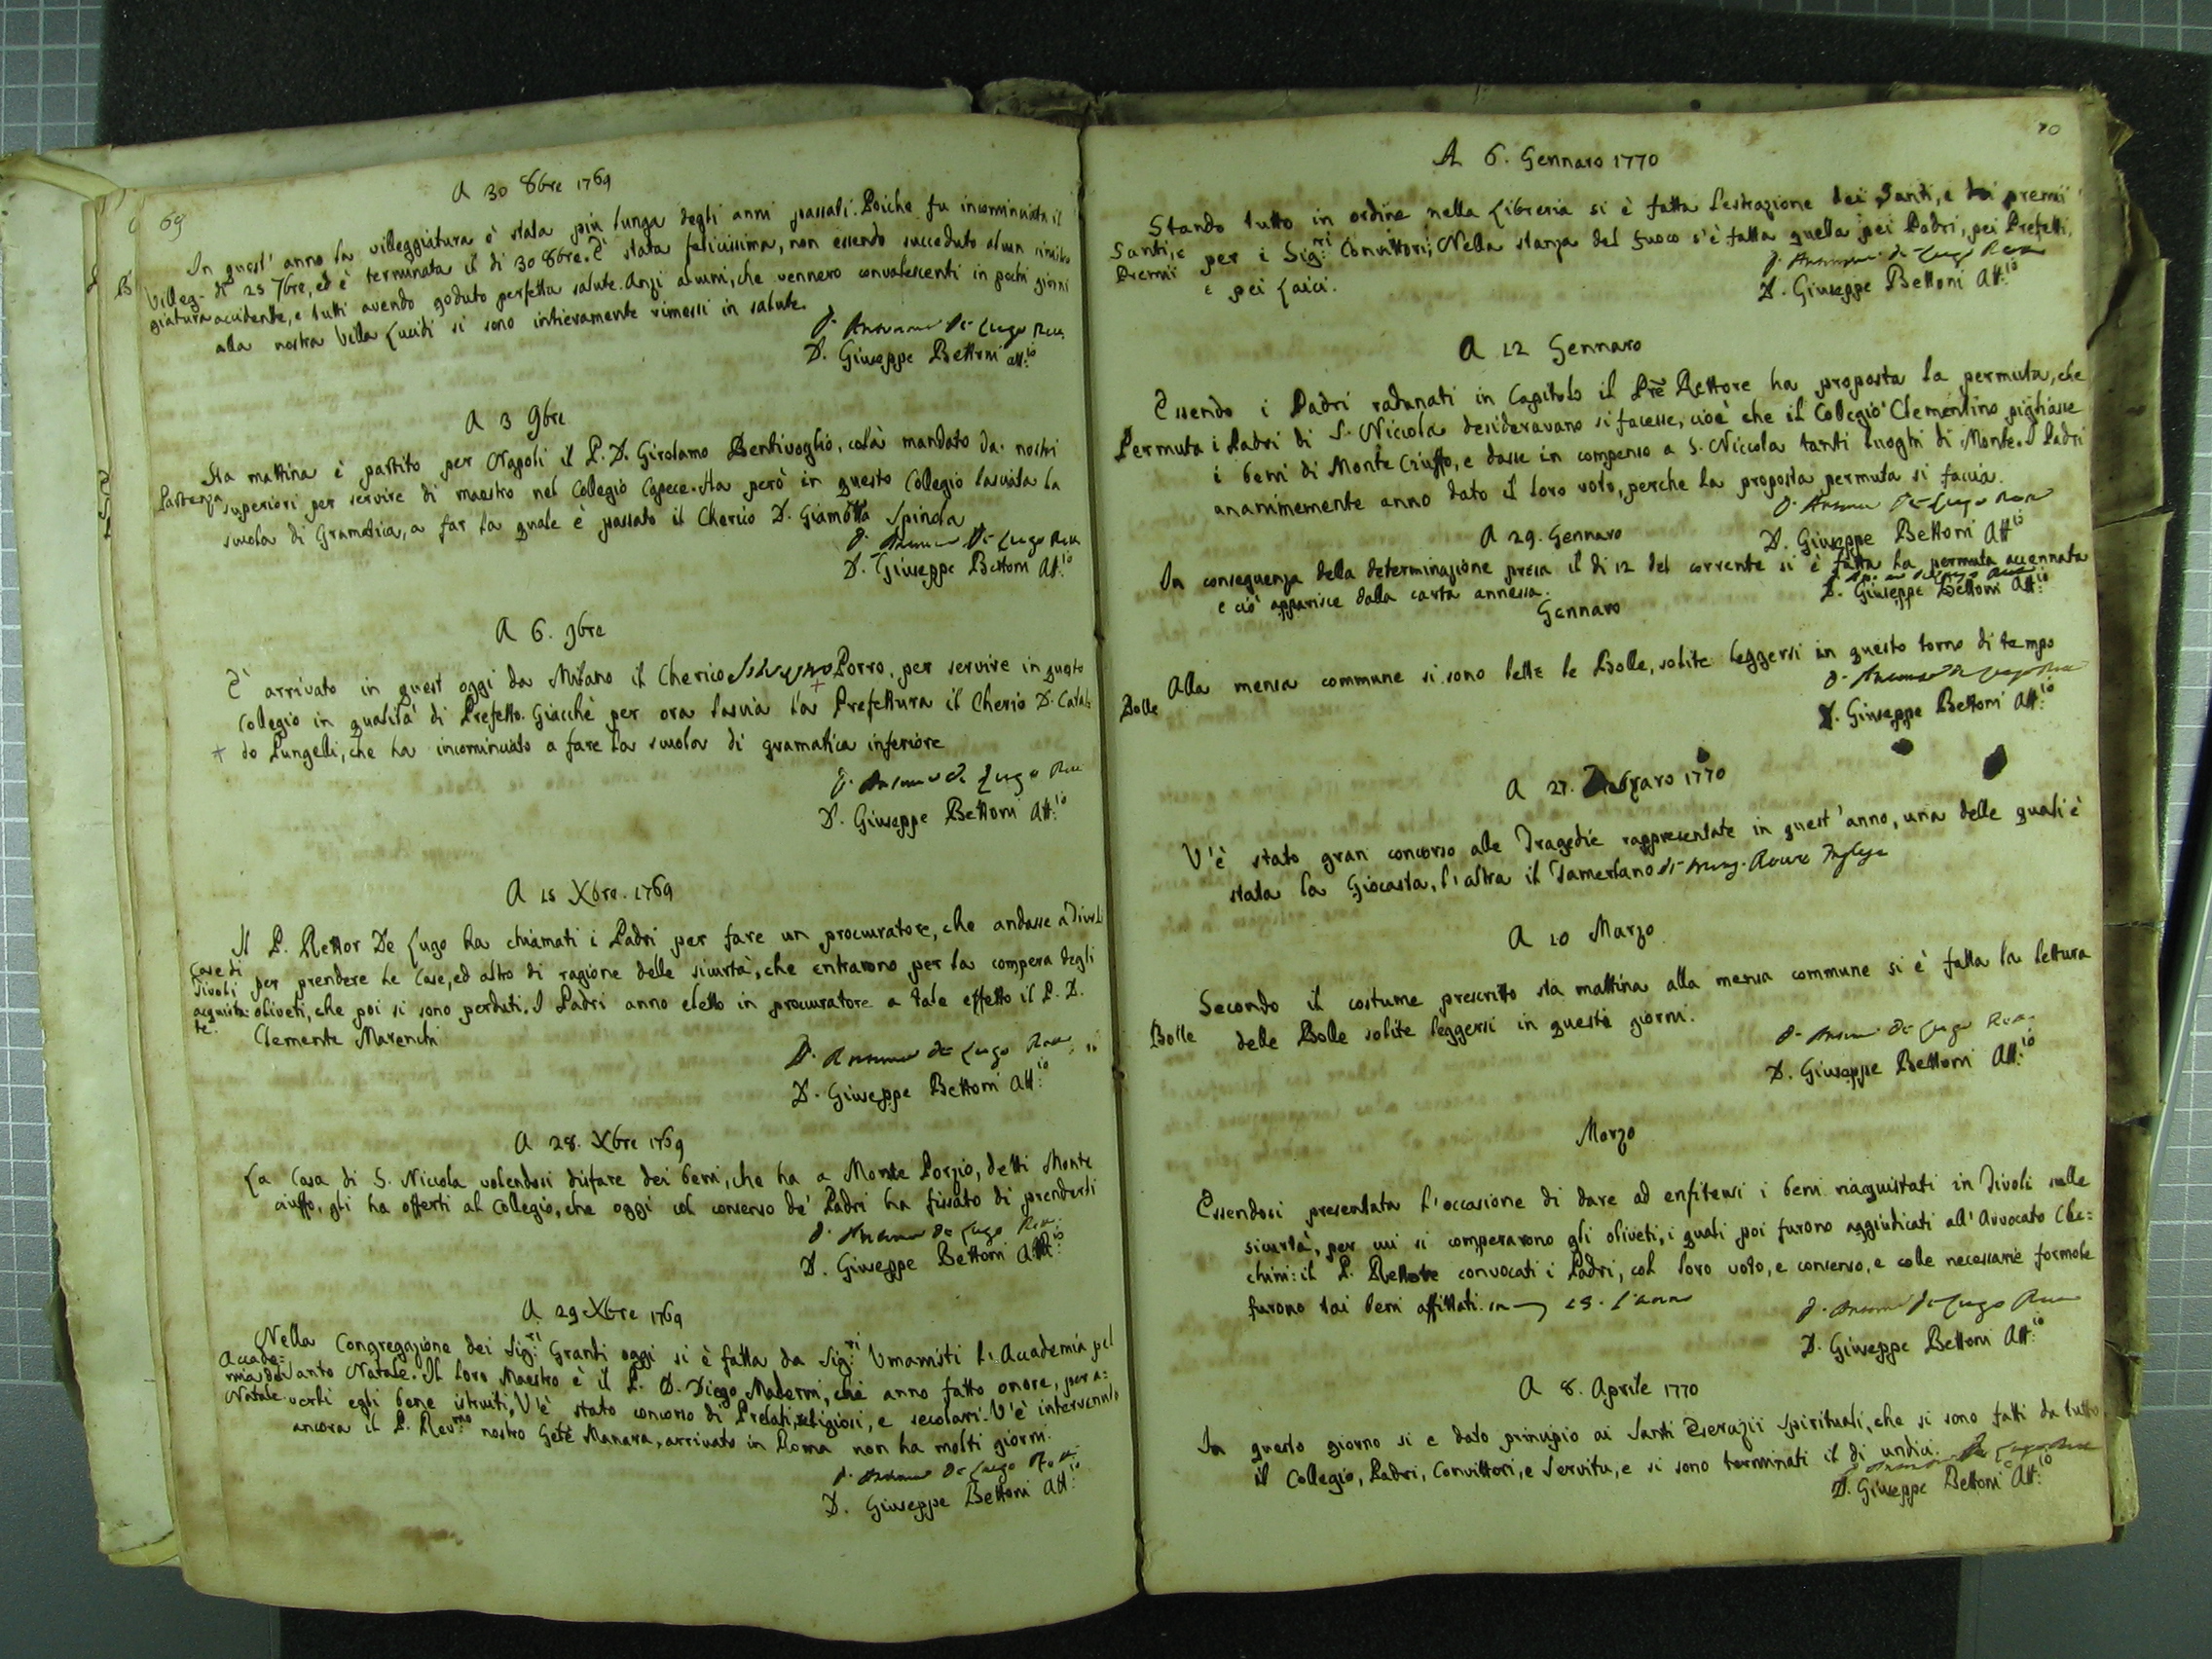 69
A 30 8bre 1769
In quest' anno la villeggiatura è stata più lunga degli anni passati. Poiche fu incominciata il
Villeg- dì 25 7bre, ed è terminata il di 30 8bre. È stata felicissima, non essendo succeduto alcun
giatura accidente, e tutti avendo goduto perfetta salute. Anzi alcuni, che vennero convalescenti in pochi giorni
alla nostra Villa Lucidi si sono intieramente rimessi in salute.
D. Antonio De Lugo Rett.
D. Giuseppe Bettoni att.io
A 3 9bre
Sta mattina è partito per Napoli il P. D. Girolamo Bentivoglio, colà mandato da' nostri
Partenza superiori per servire di maestro nel Collegio Capece. Ha però in questo Collegio lasciata la
scuola di Gramatica, a far la quale è passato il Cherico D. Giamötta Spinola
De Lugo Rett
D. Giuseppe Bettoni Att.io
A 6. 9bre
È arrivato in quest' oggi da Milano il Cherico Porro, per servire in questo
Collegio in qualità di Prefetto. Giacchè per ora lascia la Prefettura il Cherico D. Catal-
+ do Pungelli, che ha incominciato a fare la scuola di gramatica inferiore
De Lugo
D. Giuseppe Bettoni Att.io
A 15 Xbre. 1769
Il P. Rettor De Lugo ha chiamati i Padri per fare un procuratore, che andasse a Tivoli
Case di Tivoli acquista:te.
per prendere le Case, ed altro di ragione delle sicurtà, che entrarono per la compera degli
oliveti, che poi si sono perduti. I Padri anno eletto in procuratore a tale effetto il P. D.
Clemente Marenchi
D. Antonio De Lugo Rett.
D. Giuseppe Bettoni Att.io
A 28. Xbre 1769
La Casa di S. Nicola volendosi disfare dei beni, che ha a Monte Porzio, detti Monte
ciuffo, gli ha offerti al Collegio, che oggi col consenso de' Padri ha fissato di prenderli
De Lugo
D. Giuseppe Bettoni Att.io
A 29 Xbre 1769
Nella Congregazione dei Sig.ri Granti oggi si è fatta da Sig.ri Umanisti l'Accademia pel
Accade= mia del Natale
Santo Natale. Il loro Maestro è il P. D. Diego Maderni, che anno fatto onore, per a=
verli egli bene istruiti, V'è stato concorso di Prelati, religiosi, e secolari. V'è intervenuto
ancora il P. Rev.mo nostro Gñle Manara, arrivato in Roma non ha molti giorni.
De Lugo
D. Giuseppe Bettoni Att.io
70
A 6. Gennaro 1770
Stando tutto in ordine nella Libreria si è fatta l'estrazione dei Santi, e dei premii
Santi, e Premii
per i Sig.ri Convittori; Nella stanza del fuoco s'è fatta quella pei Padri, pei Prefetti,
e pei Laici.
D. Antonio De Lugo Rett
D. Giuseppe Bettoni Att.io
A 12 Gennaro
Essendo i Padri radunati in Capitolo il Pre Rettore ha proposta la permuta, che
Permuta i Padri di S. Niccola desideravano si facesse, cioè che il Collegio Clementino pigliasse
i beni di Monte Ciuffo, e dasse in compenso a S. Niccola tanti luoghi di Monte. I Padri
unanimemente anno dato il loro voto, perche la proposta permuta si faccia.
D. Antonio De Lugo Rett
D. Giuseppe Bettoni Att.io
A 29. Gennaro
In conseguenza della determinazione presa il di 12 del corrente si è fatta la permuta accennata
e ciò apparisce dalla carta annessa.
D. Giuseppe Bettoni Att.io
Gennaro
Alla mensa commune si sono lette le Bolle, solite leggersi in questo torno di tempo
Bolle
D. Giuseppe Bettoni Att.io
A 27. Febraro 1770
V'è stato gran concorso alle Tragedie rappresentate in quest'anno, una delle quali è
stata la Giocasta, l'altra il Tamerlano
A 10 Marzo
Secondo il costume prescritto sta mattina alla mensa commune si è fatta la lettura
Bolle delle Bolle solite leggersi in questi giorni.
De Lugo
D. Giuseppe Bettoni Att.io
Marzo
Essendosi presentata l'occasione di dare ad enfiteusi i beni riacquistati in Tivoli sulle
sicurtà, per cui si comperarono gli oliveti, i quali poi furono aggiudicati all'Avvocato Che=
chini: il P. Rettore convocati i Padri, col loro voto, e consenso, e colle necessarie formole
furono tai beni affittati.
De Lugo
D. Giuseppe Bettoni Att.io
A 8. Aprile 1770
In questo giorno si e dato principio ai Santi Esercizii Spirituali, che si sono fatti da tutto
il Collegio, Padri, Convittori, e Servitu, e si sono terminati il di undici.
D. Giuseppe Bettoni Att.io